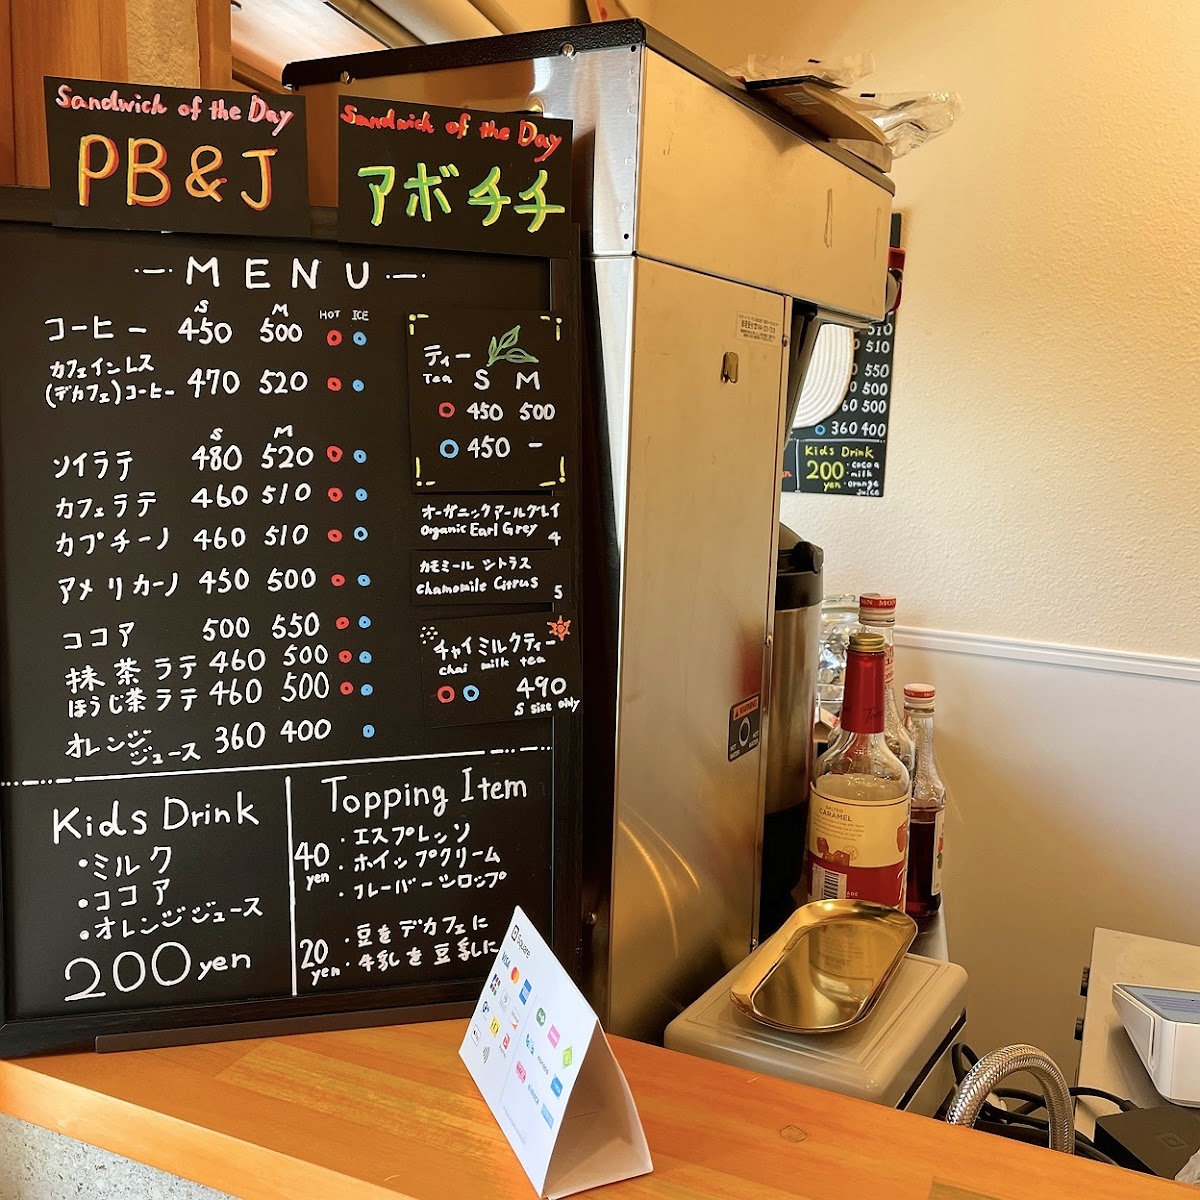 Sandwich of the Day
PB&J
Sandwich of the Day
アボチチ
MENU
S M HOT ICE
コーヒー 450 500
カフェインレス
(デカフェ)コーヒー 470 520
S M
ソイラテ 480 520
カフェラテ 460 510
カプチーノ 460 510
アメリカーノ 450 500
ココア 500 550
抹茶ラテ 460 500
ほうじ茶ラテ 460 500
オレンジ
ジュース 360 400
ティー
Tea S M
450 500
450 -
オーガニックアールグレイ
Organic Earl Grey 4
カモミール シトラス
Chamomile Citrus 5
チャイミルクティー
chai milk tea
490
S size only
Kids Drink
・ミルク
・ココア
・オレンジジュース
200yen
Topping Item
40 yen
・エスプレッソ
・ホイップクリーム
・フレーバーシロップ
20 yen
・豆をデカフェに
・牛乳を豆乳に
Square
VISA
510
510
550
500
60 500
360 400
Kids Drink
200 yen
・cocoa
・milk
・orange
juice
WARNING
SALTED
CARAMEL